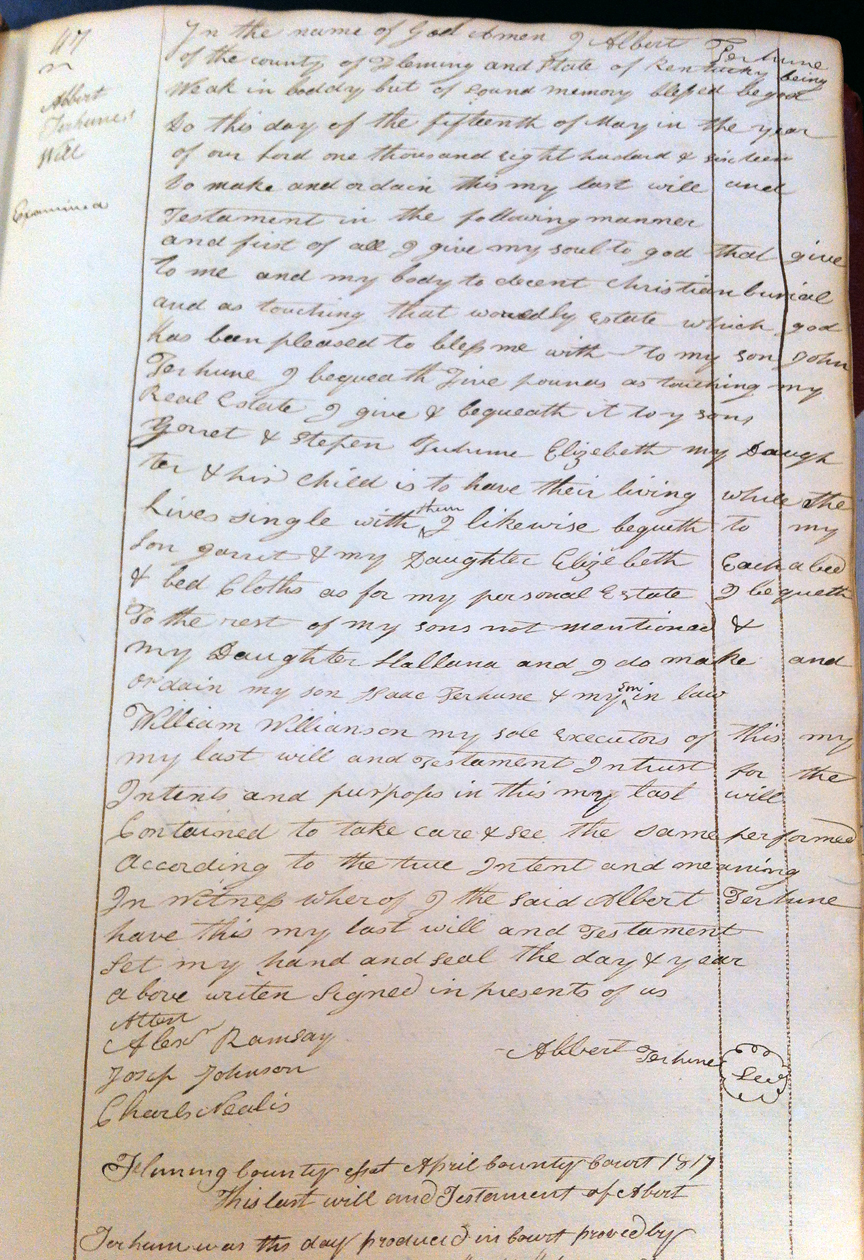 47
Albert
Terhunes
Will
Examined
In the name of God Amen I Albert Terhune
of the county of Fleming and State of Kentucky being
Weak in boddy but of Sound memory blessed be god
Do this day of the fifteenth of May in the year
of our Lord one thousand eight hudard & sixteen
to make and ordain this my last will and
Testament in the following manner
and first of all I give my soul to god that give
to me and my body to decent Christian burial
and as touching that worldly Estate which god
has been pleased to bless me with to my son John
Terhune I bequeath five pounds as touching my
Real Estate I give & bequeath it to y sons
Gorret & Stefen Turhune Elizebeth my Daugh
ter & hir Child is to have their living while the
Lives single with them I likewise bequeth to my
Son garret & my Daughter Elizebeth Each a bed
& bed Cloths as for my personal Estate I bequeth
To the rest of my sons not mentioned &
my Daughter Hallana and I do make and
ordain my son Isaac Terhune & my son in law
William Willianson my sole Executors of this my
my last will and Testament Intrust for the
Intents and purposes in this my last will
Contained to take care & see the same performed
According to the true Intent and meaning
In witness wherof I the said Albert Terhune
have this my last will and Testament
Set my hand and seal the day & year
above writen Signed in presents of us
Attest
Alexr Ramsay
Albert Terhune
Josep Johnson
Charls Nealis
Fleming County Sct April County Court 1817
This last will and Testament of Abert
Terhune was this day produced in Court proved by